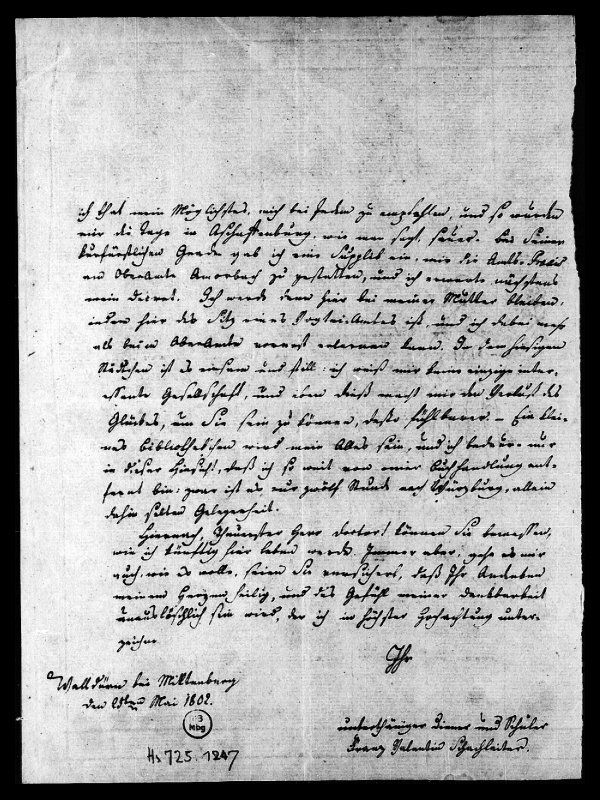 ich that mein Möglichstes, mich bei Jedem zu empfehlen, und so wurden
mir die Tage in Aschaffenburg, wie man sagt, sauer. Bei Seiner
kurfürstlichen Gnade gab ich eine Supplik ein, mir die Amts-Praxis
am Oberamte Amorbach zu gestatten, und ich erwarte nächstens
mein Decret. Ich werde dann hier bei meiner Mutter bleiben,
indem hier der Sitz eines Vogtei-Amtes ist, und ich dabei mehr
als beim Oberamte vorerst erlernen kann. In dem hiesigen
Städtchen ist es einsam und still; ich weiß mir keine einzige inter-
essante Gesellschaft, und eben dieß macht mir den Verlust des
Glückes, um Sie sein zu können, desto fühlbarer. – Ein klei-
nes Bibliothekchen wird mein Alles sein, und ich bedaure nur
in dieser Hinsicht, daß ich so weit von einer Buchhandlung ent-
fernt bin: zwar ist es nur zwölf Stunde nach Würzburg, allein
dahin selten Gelegenheit.
Hiernach, Theuerster Herr Doctor! können Sie bemessen,
wie ich künftig hier leben werde. Immer aber, gehe es mir
auch, wie es wolle, seien Sie versichert, daß Ihr Andenken
meinem Herzen heilig, und das Gefühl meiner Dankbarkeit
unauslöschlich sein wird, der ich in höchster Hochachtung unter-
zeichne
Ihr
Walldürn bei Miltenburg
den 28ten Mai 1802.
unterthäniger Diener und Schüler
Franz Valentin Schachleiter.
3
Mbg
Hs 725. 1247